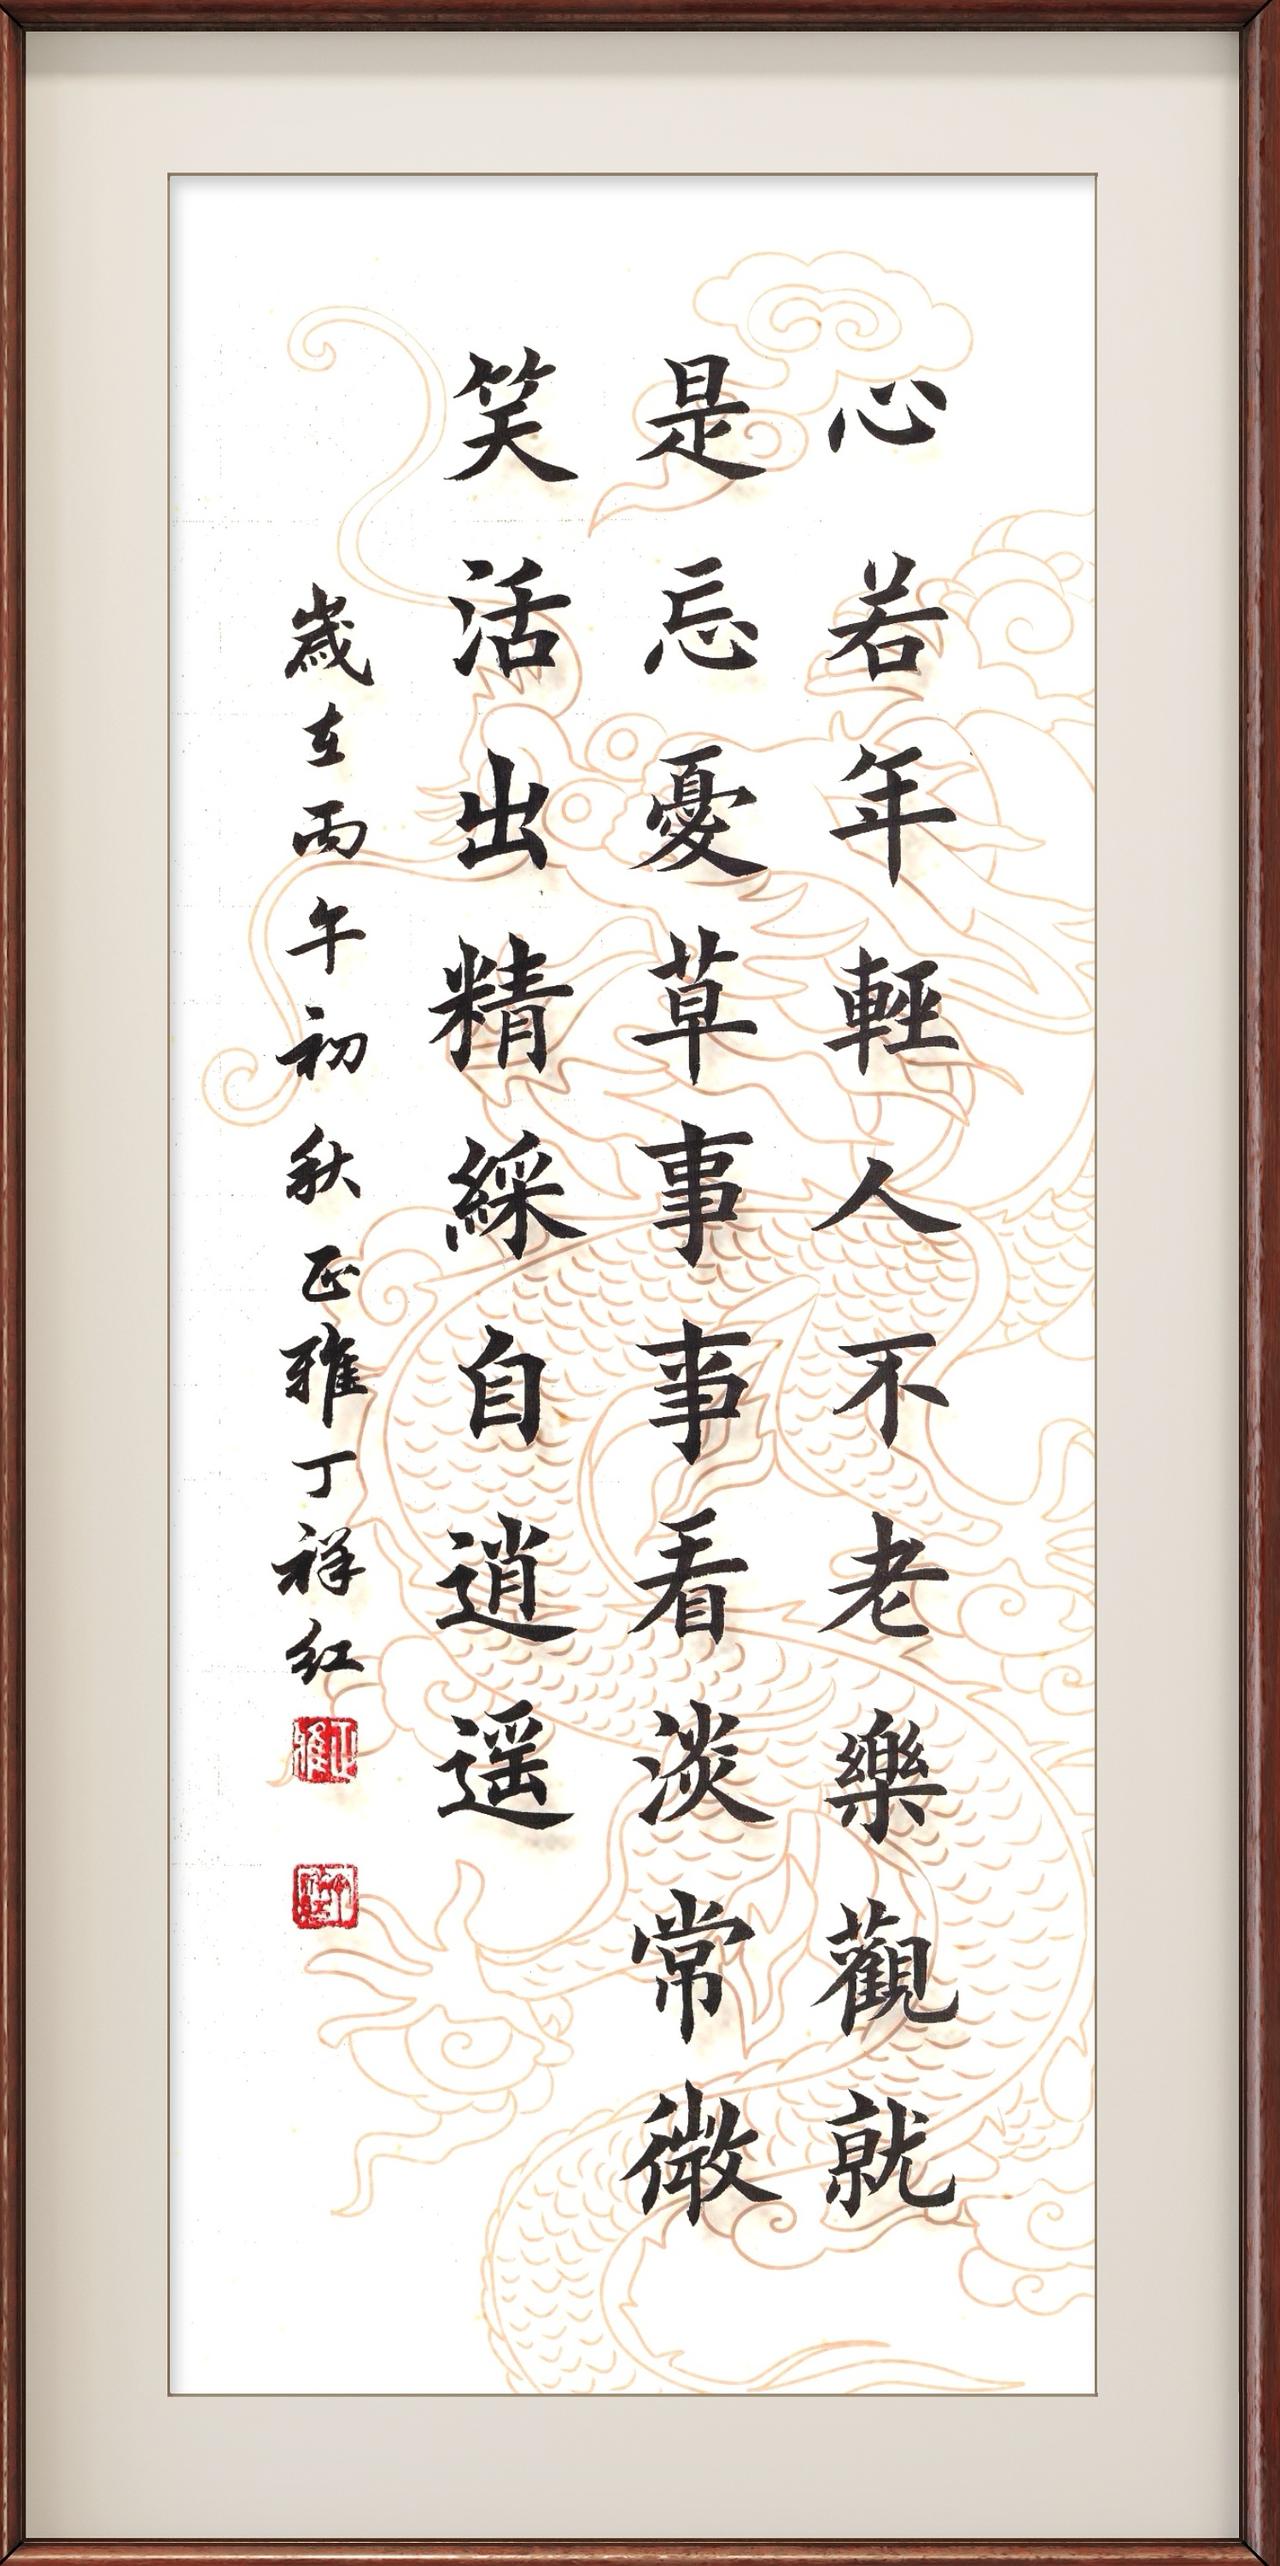 心若年輕人不老樂觀就
是忘憂草事事看淡常微
笑活出精綵自逍遥
歲在丙午初秋正雅丁祥红
正雅